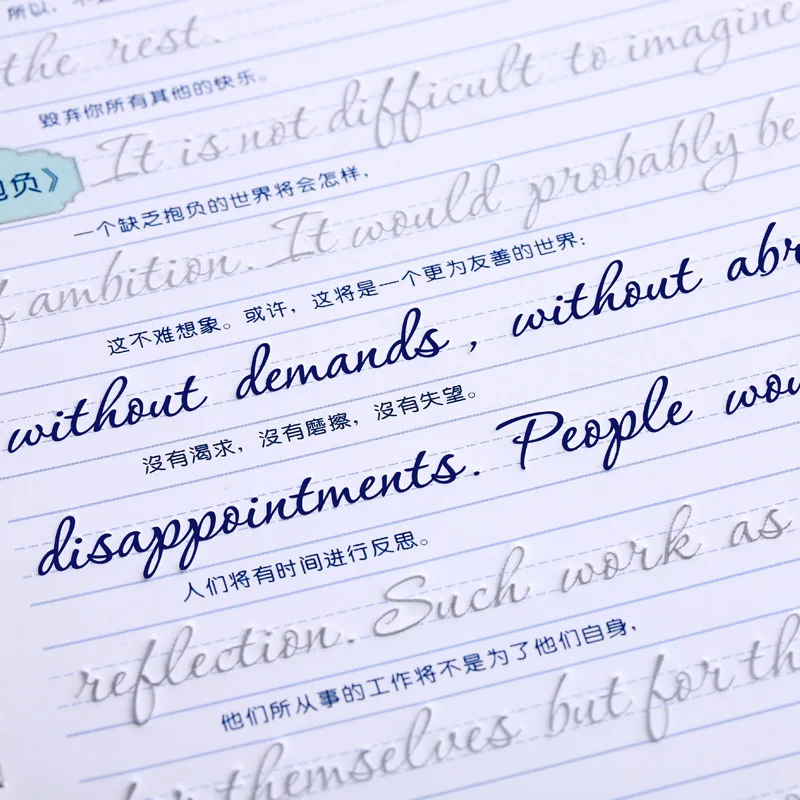 所以，不
the rest.
毁弃你所有其他的快乐。
It is not difficult to imagine
抱负》
一个缺乏抱负的世界将会怎样，
f ambition. It would probably be
这不难想象。或许，这将是一个更为友善的世界：
without demands, without abr
沒有渴求，沒有磨擦，沒有失望。
disappointments. People wou
人们将有时间进行反思。
reflection. Such work as
他们所从事的工作将不是为了他们自身，
themselves but for th